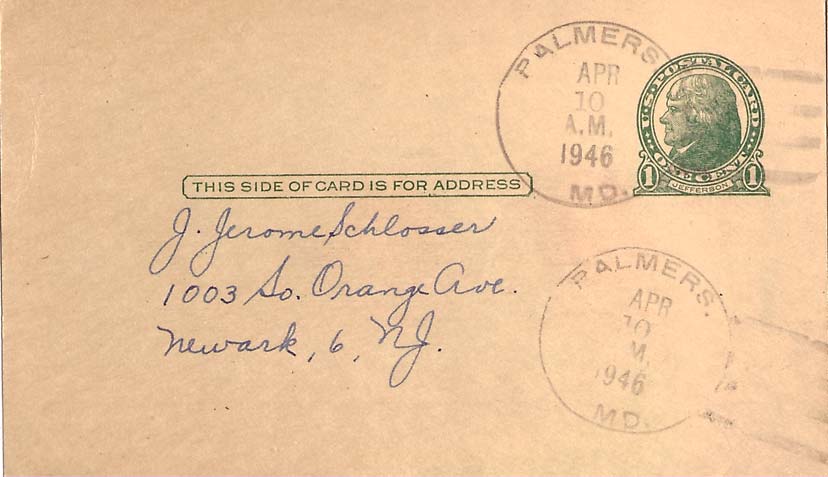 PALMERS.
APR
10
A.M.
1946
MD.
U.S. POSTAL CARD
ONE CENT
1 JEFFERSON 1
THIS SIDE OF CARD IS FOR ADDRESS
J. Jerome Schlosser
1003 So. Orange Ave.
Newark, 6, NJ.
PALMERS.
APR
10
M.
1946
MD.